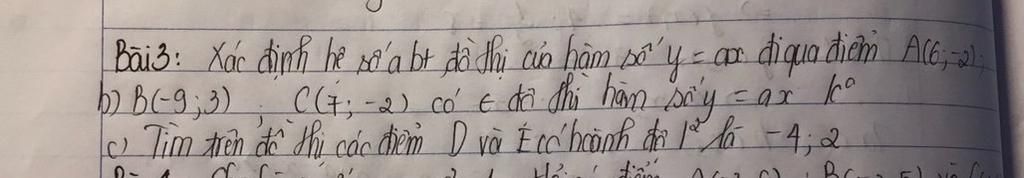 Bài 3: Xác định hệ số a bt đồ thị của hàm số y = ax đi qua điểm A(6; -2);
b) B(-9; 3), C(7; -2) có ∈ đồ thị hàm số y = ax k°
c) Tìm trên đồ thị các điểm D và E có hoành độ l² là -4; 2